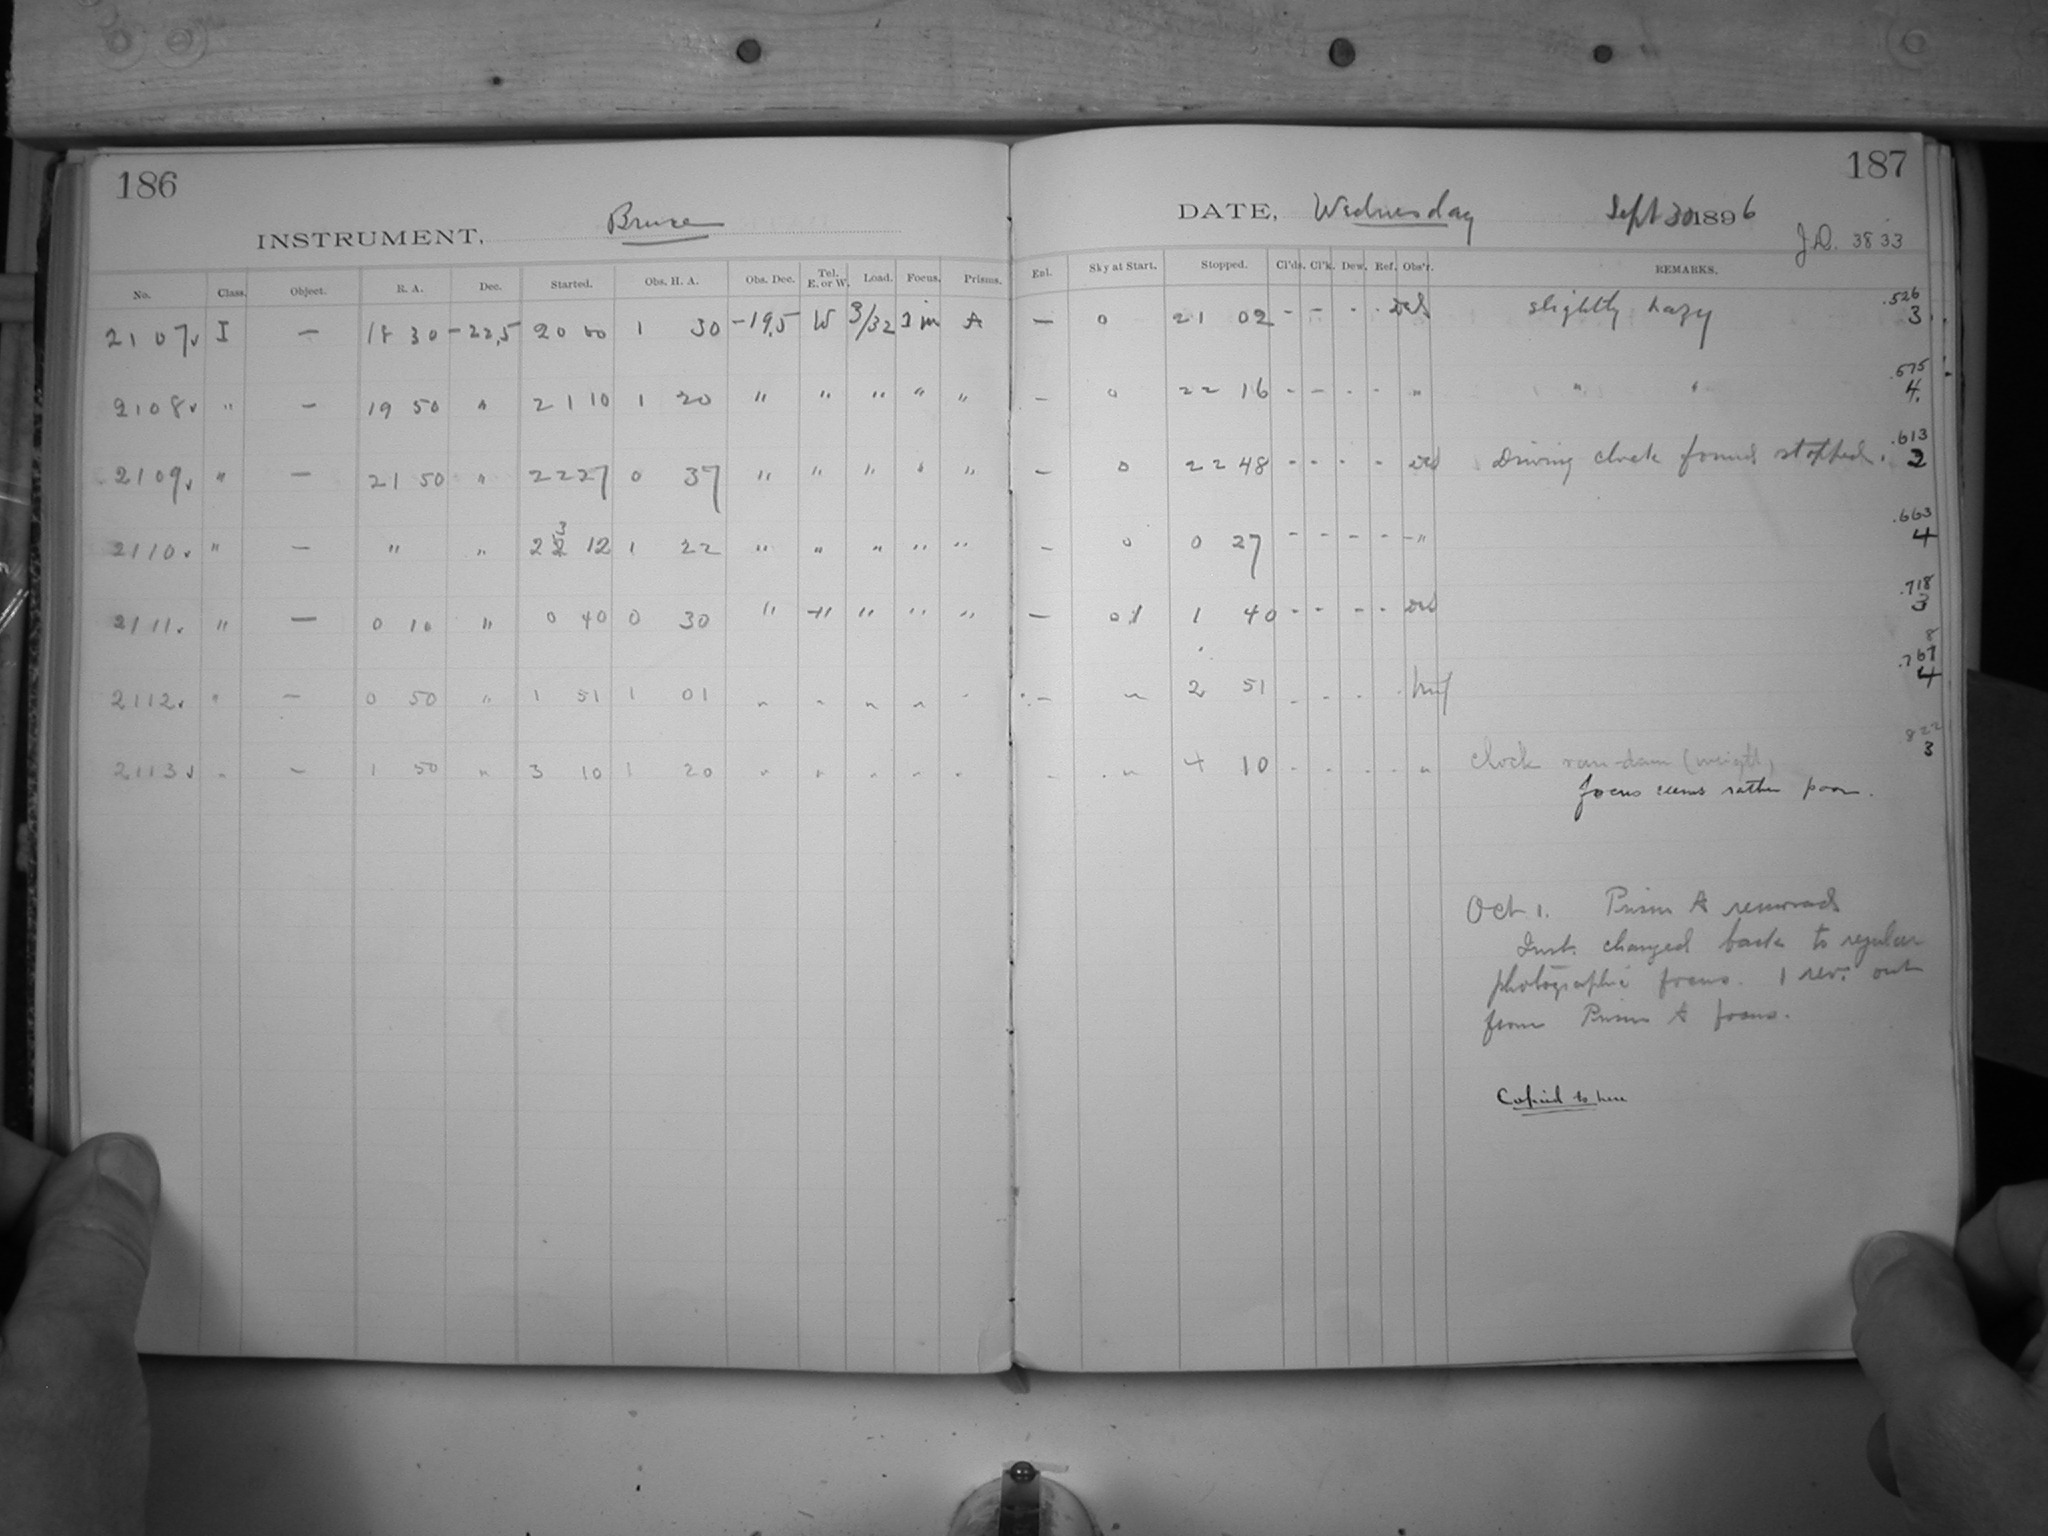 186
INSTRUMENT, Bruce
No. Class. Object. R. A. Dec. Started. Obs. H. A. Obs. Dec. Tel. E. or W. Load. Focus. Prisms.
2107v I — 18 30 -22,5 20 00 1 30 -19,5 W 3/32 A
2108v " — 19 50 " 21 10 1 20 " " " " "
2109v " — 21 50 " 22 27 0 37 " " " " "
2110v " — " " 23 12 1 22 " " " " "
2111v " — 0 10 " 0 40 0 30 " " " " "
2112v " — 0 50 " 1 51 1 01 " " " " "
2113v " — 1 50 " 3 10 1 20 " " " " "
187
DATE, Wednesday Sept 30 1896
J.D. 3833
Enl. Sky at Start. Stopped. Cl'ds. Cl'k. Dew. Ref. Obs'r. REMARKS.
— 0 21 02 - - - - slightly hazy .526 3
— 0 22 16 - - - - " " " .575 4
— 0 22 48 - - - - Driving clock found stopped. .613 2
— 0 0 27 - - - - " .663 4
— 1 40 - - - - .718 3
— " 2 51 - - - - .767 8 4
— " 4 10 - - - - " clock ran down (weight) 822 3
focus seems rather poor.
Oct 1. Prism A removed
Inst. changed back to regular
photographic focus. 1 rev. out
from Prism A focus.
Copied to here